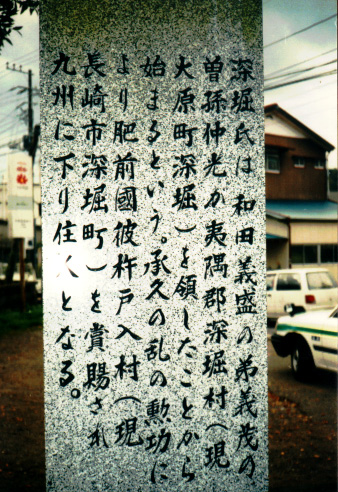 深堀氏は和田義盛の弟義茂の
曽孫仲光が夷隅郡深堀村(現
大原町深堀)を領したことから
始まるという。承久の乱の勲功に
より肥前國彼杵戸入村(現
長崎市深堀町)を賞賜され
九州に下り住人となる。